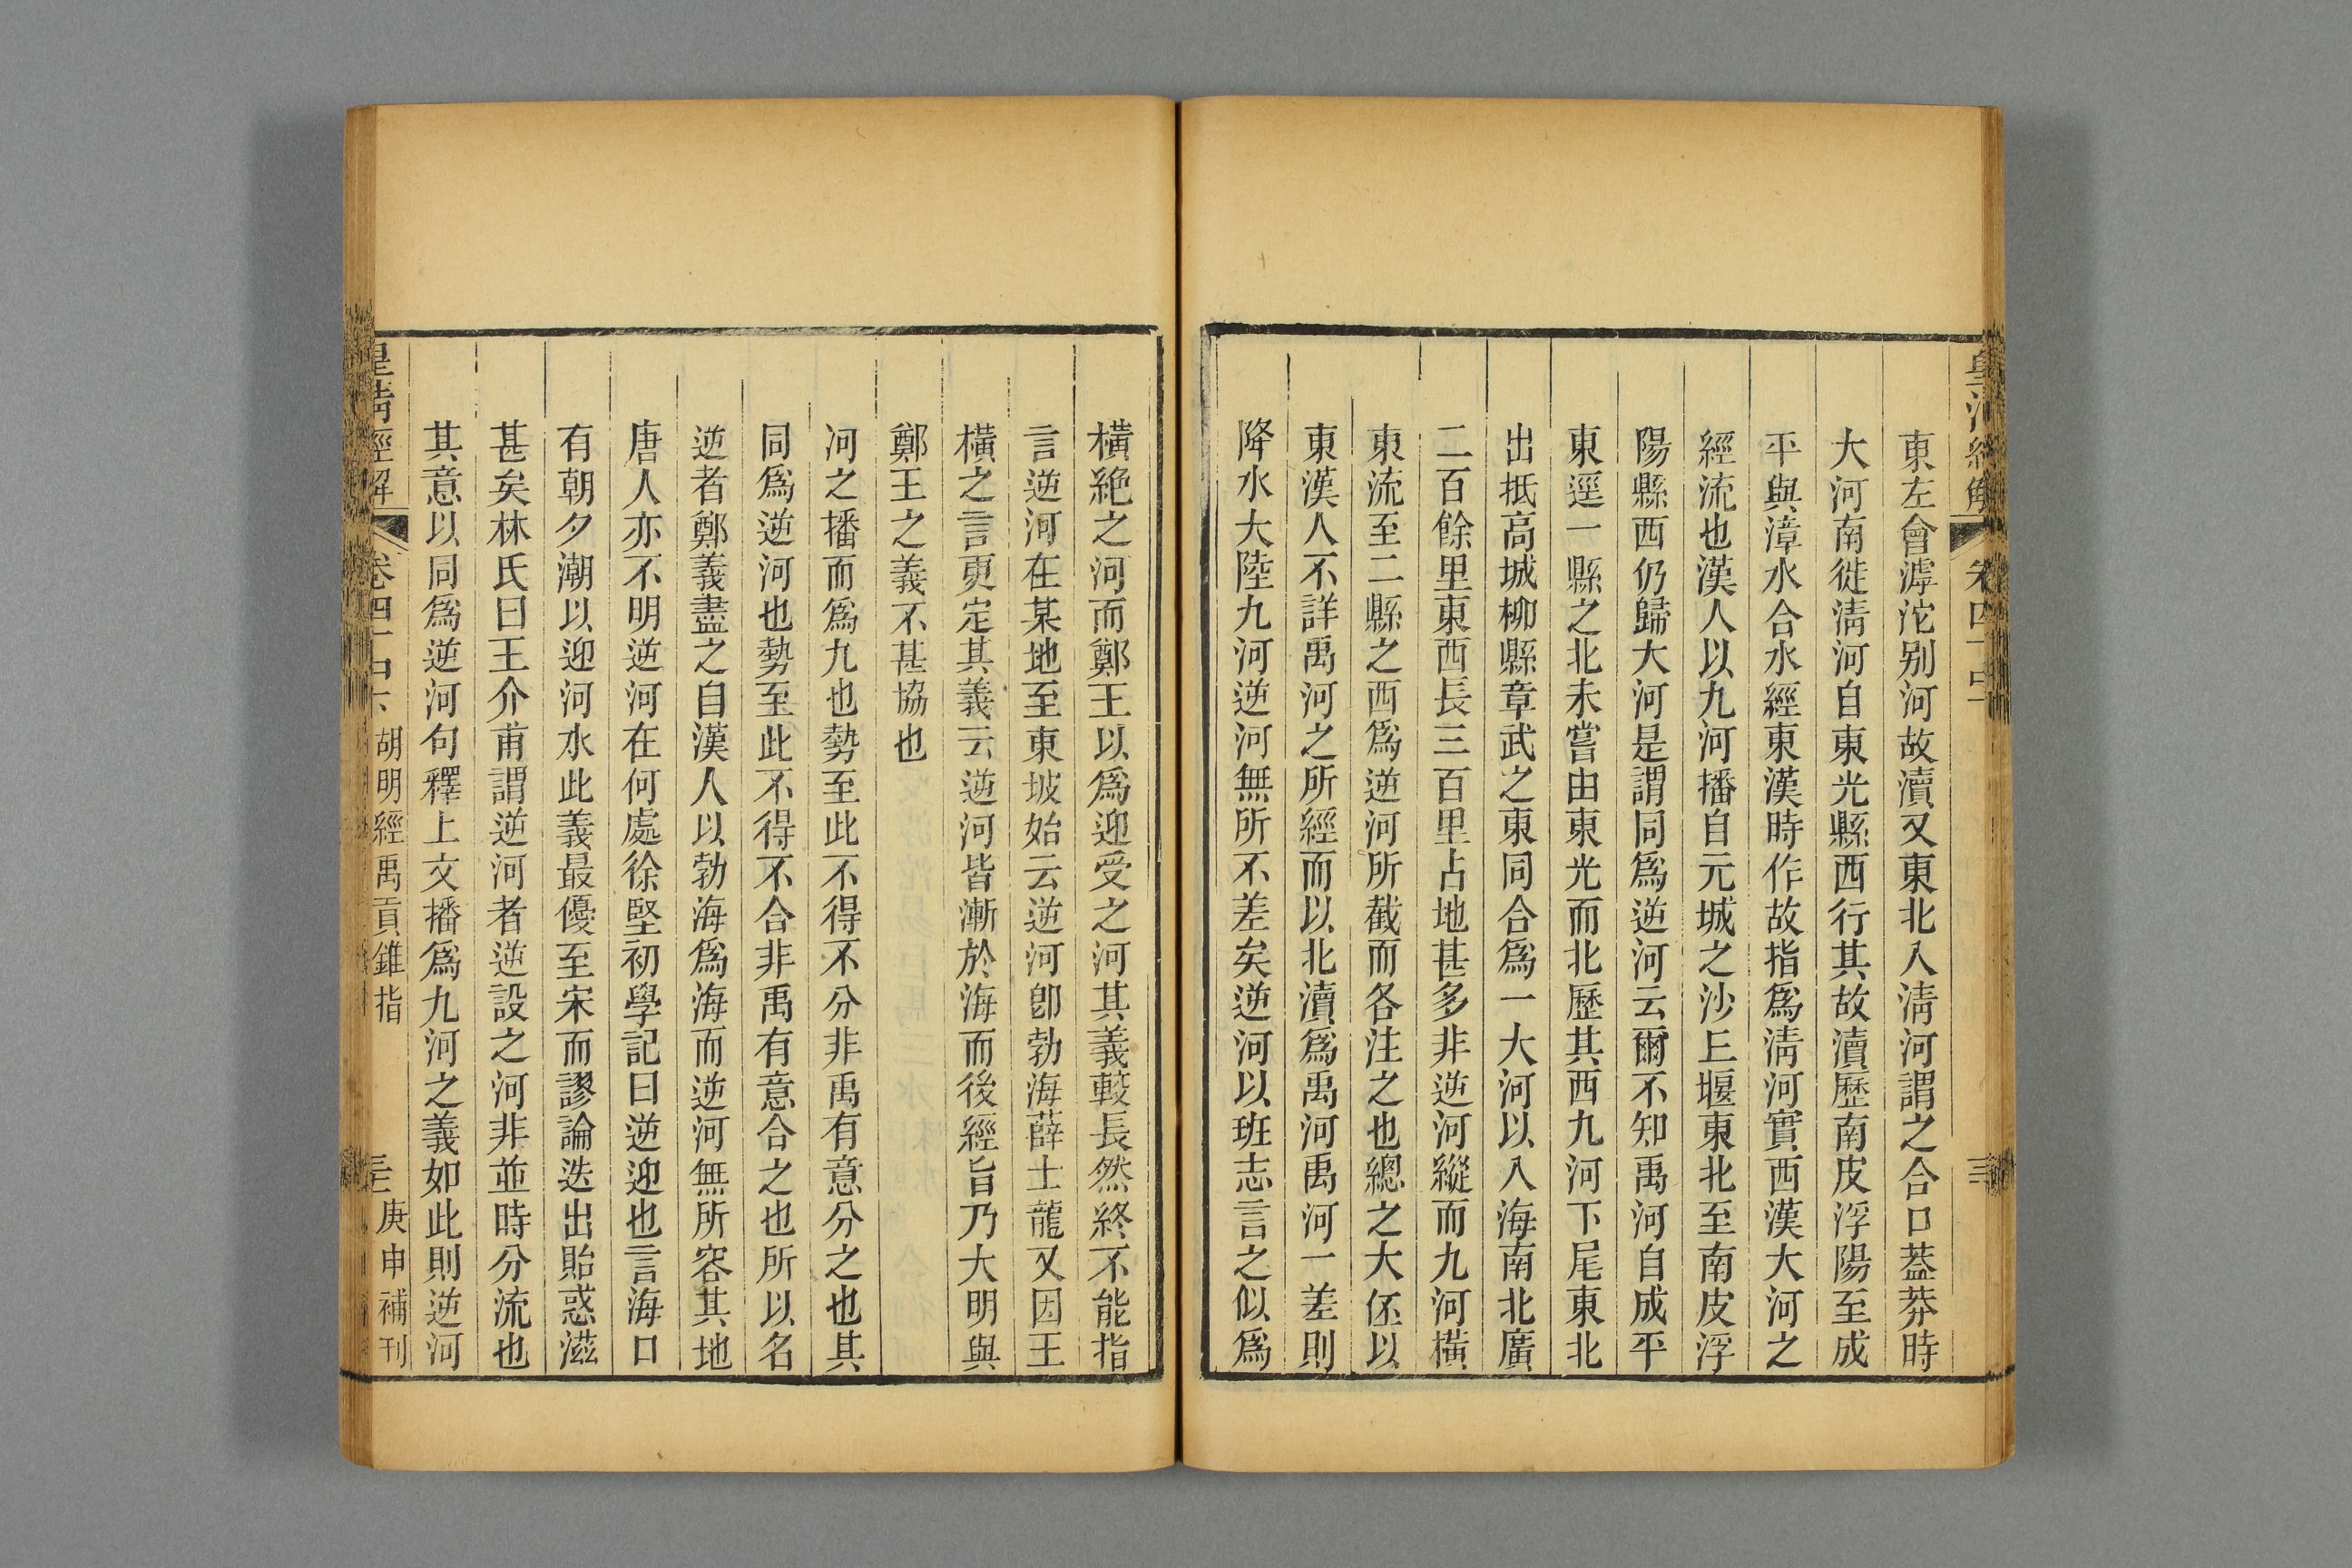 東左會滹沱别河故瀆又東北入淸河謂之合口葢莽時
大河南徙淸河自東光縣西行其故瀆歷南皮浮陽至成
平與漳水合水經東漢時作故指爲淸河實西漢大河之
經流也漢人以九河播自元城之沙丘堰東北至南皮浮
陽縣西仍歸大河是謂同爲逆河云爾不知禹河自成平
東逕一縣之北未嘗由東光而北歷其西九河下尾東北
出抵高城柳縣章武之東同合爲一大河以入海南北廣
二百餘里東西長三百里占地甚多非逆河縱而九河橫
東流至二縣之西爲逆河所截而各注之也總之大伾以
東漢人不詳禹河之所經而以北瀆爲禹河禹河一差則
降水大陸九河逆河無所不差矣逆河以班志言之似爲
橫絶之河而鄭王以爲迎受之河其義較長然終不能指
言逆河在某地至東坡始云逆河卽勃海薛士龍又因王
橫之言更定其義云逆河皆漸於海而後經旨乃大明與
鄭王之義不甚協也
河之播而爲九也勢至此不得不分非禹有意分之也其
同爲逆河也勢至此不得不合非禹有意合之也所以名
逆者鄭義盡之自漢人以勃海爲海而逆河無所容其地
唐人亦不明逆河在何處徐堅初學記曰逆迎也言海口
有朝夕潮以迎河水此義最優至宋而謬論迭出貽惑滋
甚矣林氏曰王介甫謂逆河者逆設之河非並時分流也
其意以同爲逆河句釋上文播爲九河之義如此則逆河
皇淸經解
卷四十
胡明經禹貢錐指
庚申補刊